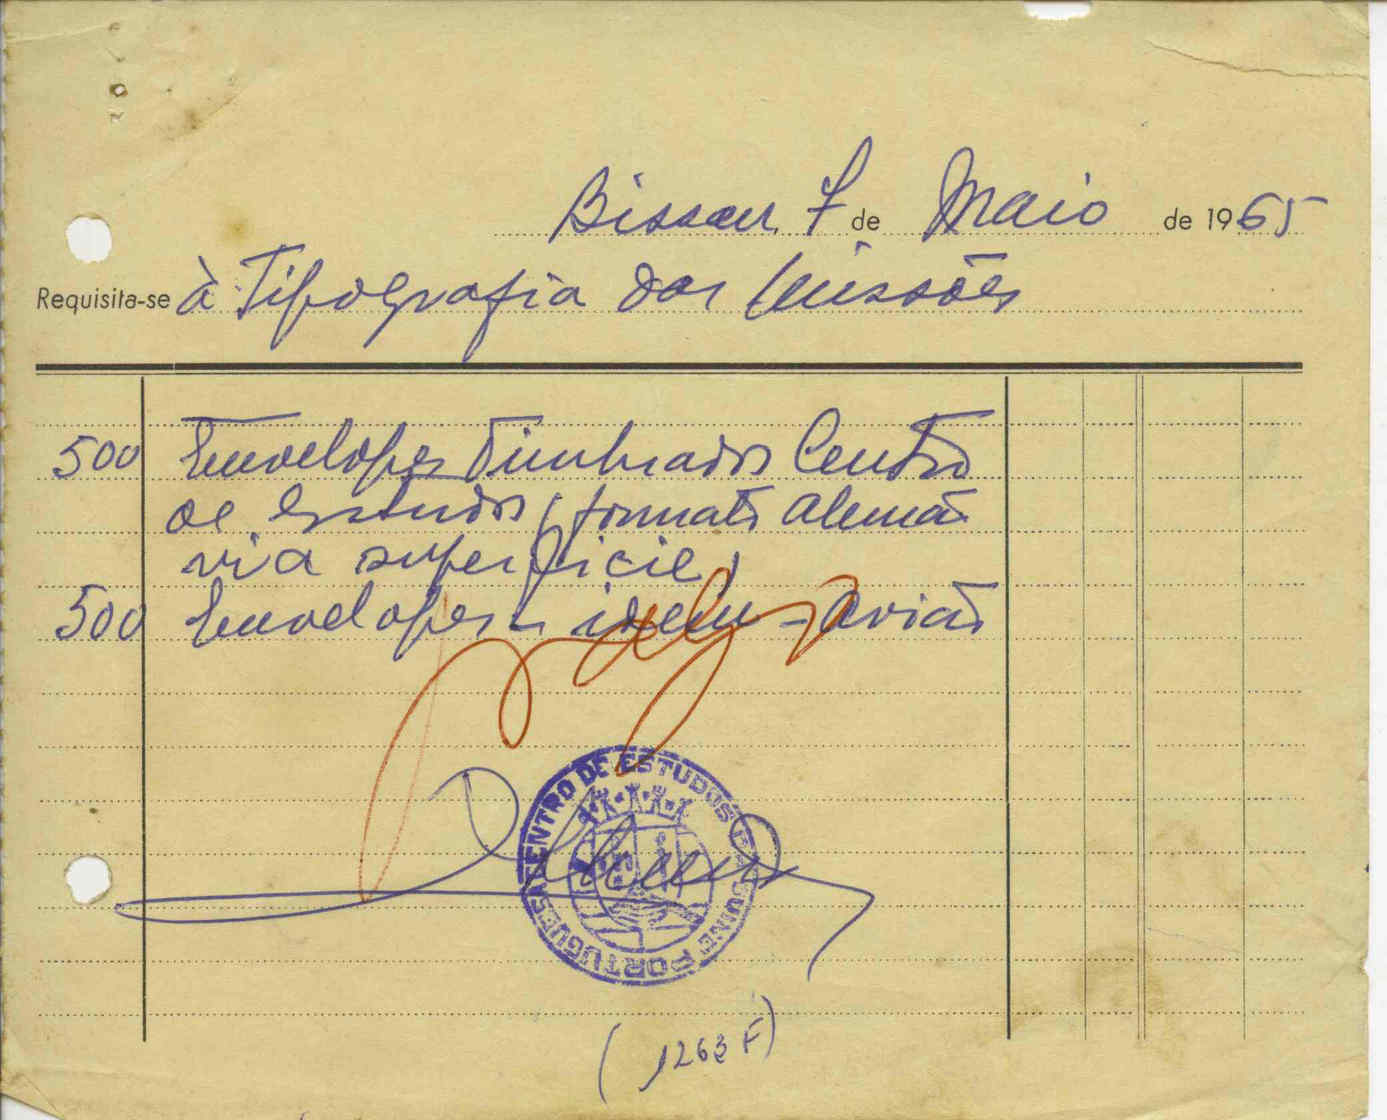 Bissau 7 de Maio de 1965
Requisita-se à Tipografia das Missões
500 Envelopes Timbrados Centro
de Estudos (formato alemão
via superfície)
500 Envelopes - idem - avião
CENTRO DE ESTUDOS DA GUINÉ PORTUGUESA
(1263 F)